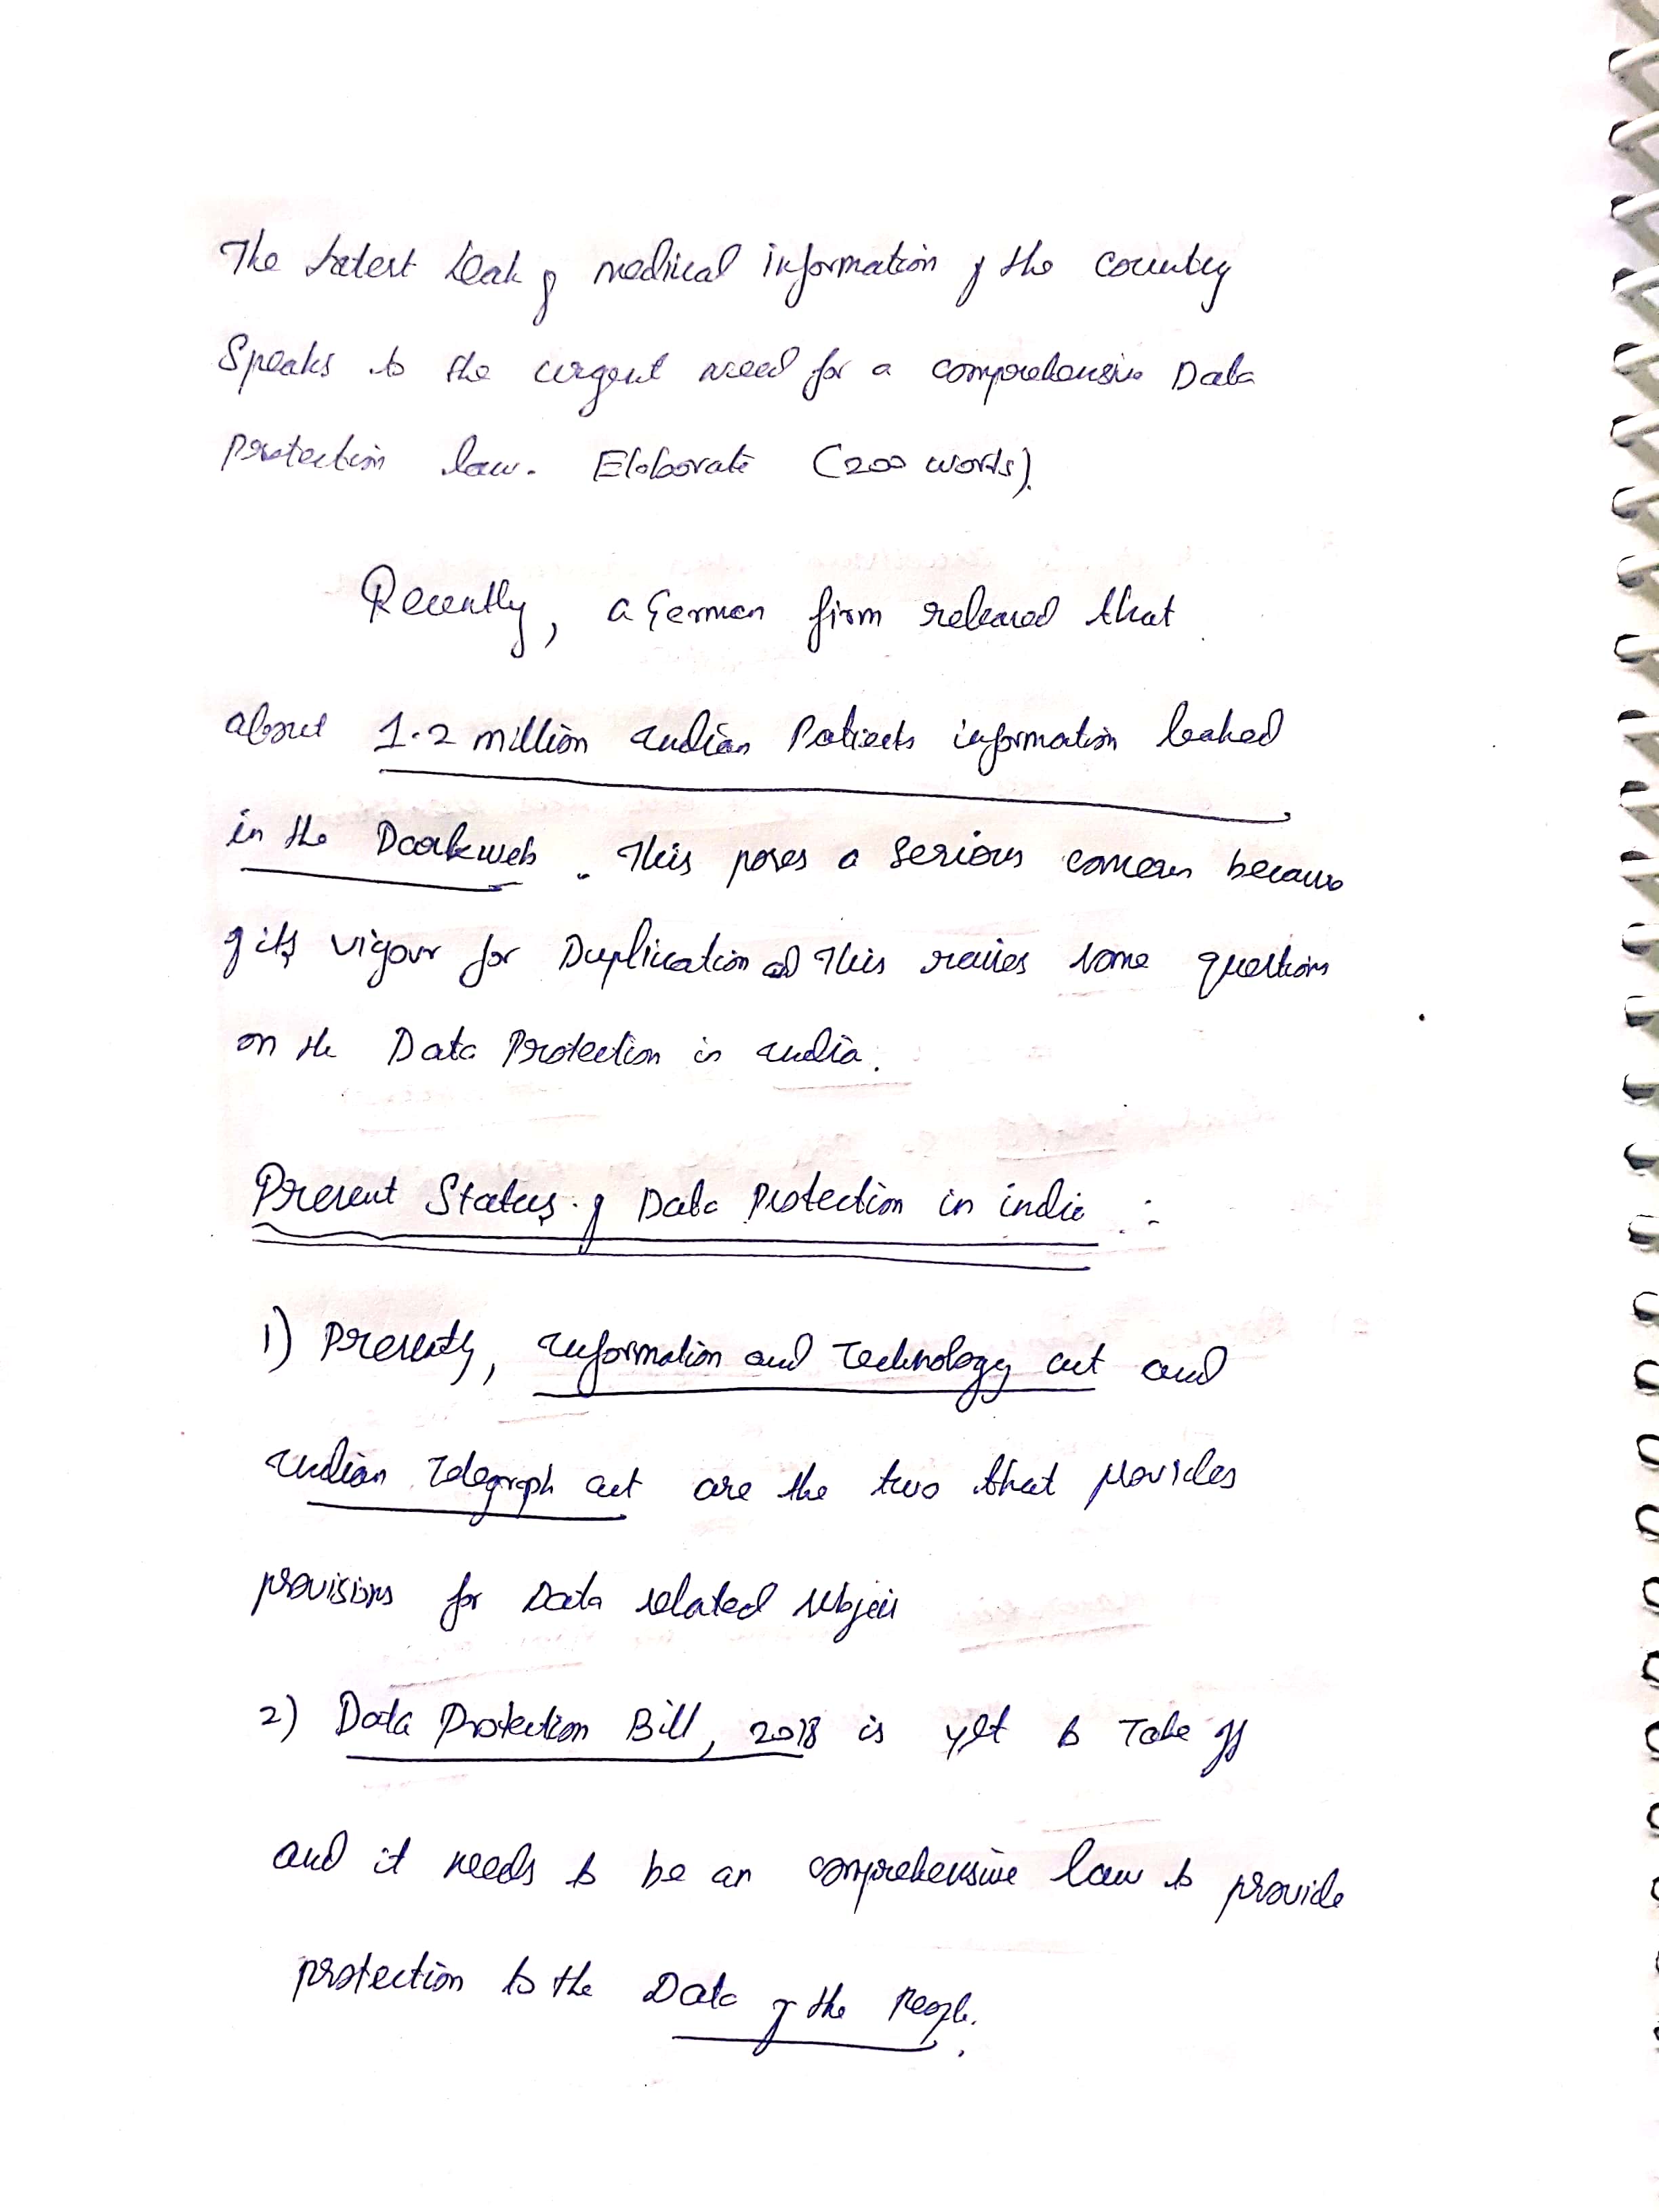 The Latest Leak of medical information of the country
Speaks to the urgent need for a comprehensive Data
Protection law. Elaborate (200 words).
Recently, a German firm released that
about 1.2 million Indian Patients information leaked
in the Darkweb. This poses a serious concern because
of its vigour for Duplication and This raises some questions
on the Data Protection in India.
Present Status of Data Protection in india :-
1) Presently, Information and Technology act and
Indian Telegraph act are the two that provides
provisions for Data related
2) Data Protection Bill, 2018 is yet to Take off
and it needs to be an comprehensive law to provide
protection to the Data of the People.